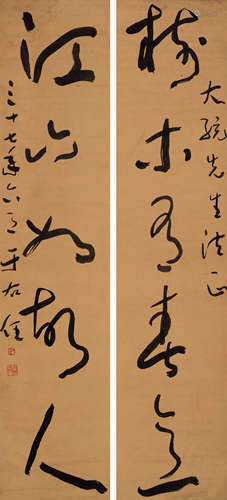 大 先生法正
樹木有春意
江山如故人
三十七年六月 于右任